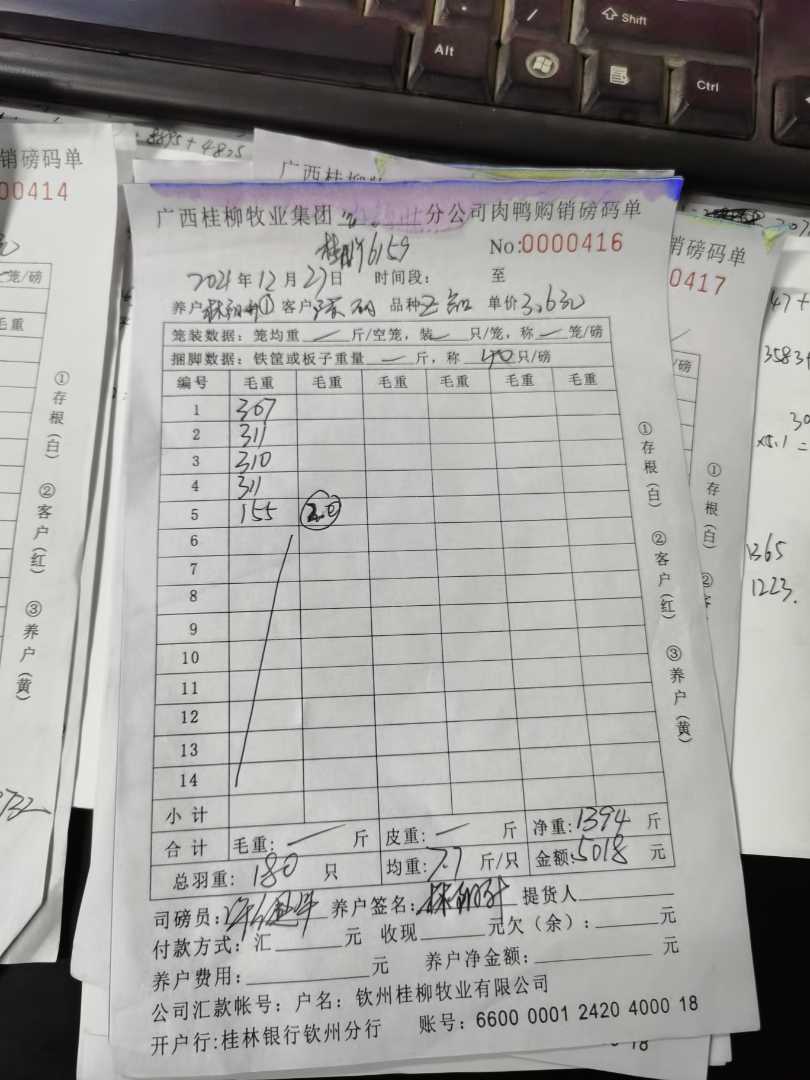 Shift
Alt
Ctrl
8875+4825
销磅码单
000414
笼/磅
毛重
①存根(白) ②客户(红) ③养户(黄)
广西桂柳
广西桂柳牧业集团 分公司肉鸭购销磅码单
桂 6159
No:0000416
2021年12月27日 时间段: 至
养户 ① 客户 品种 单价3.630
笼装数据: 笼均重 — 斤/空笼, 装 — 只/笼, 称 — 笼/磅
捆脚数据: 铁筐或板子重量 — 斤, 称 40只/磅
编号 毛重 毛重 毛重 毛重 毛重 毛重
1 307
2 311
3 310
4 311
5 155 20
6
7
8
9
10
11
12
13
14
小计
合计 毛重: — 斤 皮重: — 斤 净重:1394 斤
总羽重: 180 只 均重:7.7 斤/只 金额:5018 元
司磅员: 养户签名: 提货人
付款方式: 汇 元 收现 元欠(余): 元
养户费用: 元 养户净金额: 元
公司汇款帐号: 户名: 钦州桂柳牧业有限公司
开户行:桂林银行钦州分行 账号: 6600 0001 2420 4000 18
①存根(白) ②客户(红) ③养户(黄)
销磅码单
0417
/磅
①存根(白) ②
47+
3583+
x5.1 =
1365
1223.
18